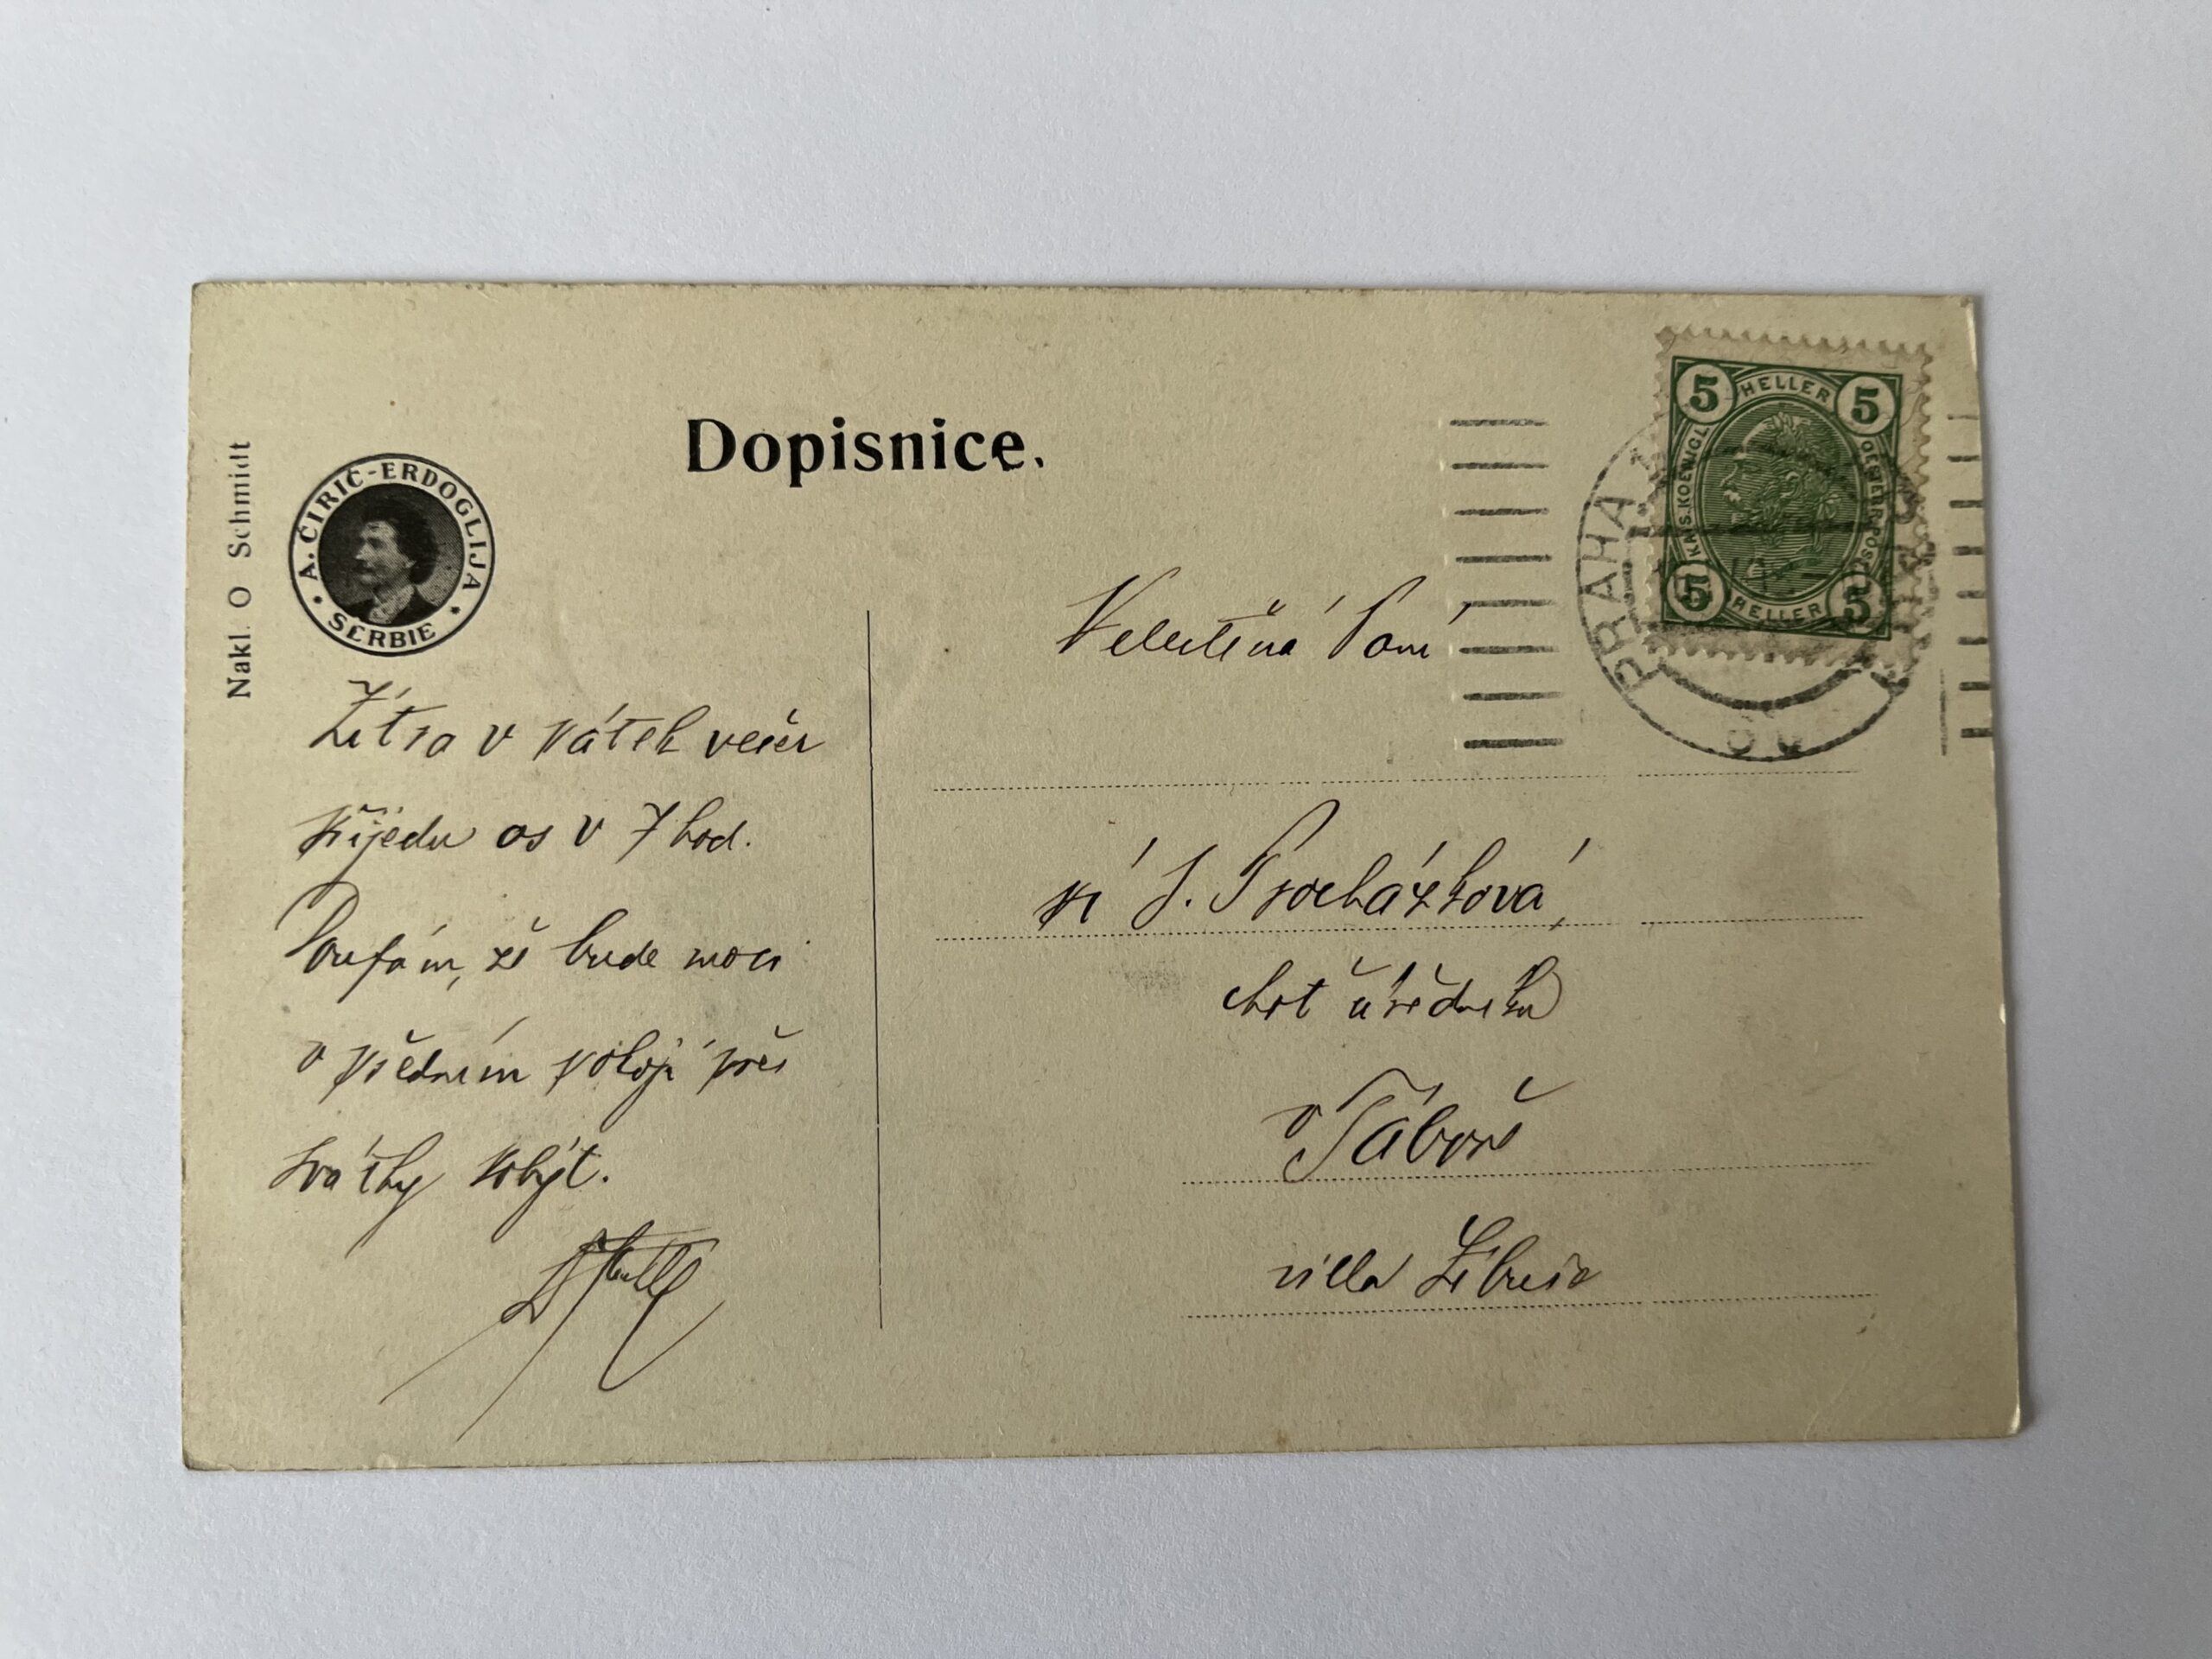 Dopisnice.
Nakl. O Schmidt
A. ĆIRIĆ-ERDOGLIJA
• SERBIE •
5 HELLER 5
KAIS. KOENIGL. OESTERR. POST
5 HELLER 5
PRAHA 1
Zítra v pátek večer
přijedu as v 7 hod.
Doufám, že bude moci
v předním pokoji přes
svátky pobýt.
Velectěná Paní
pí J. Procházková,
choť úředníka
v Táboře
villa Libuše